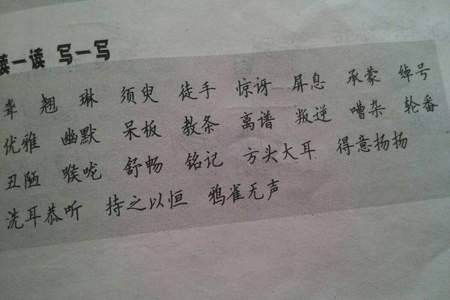 读一读 写一写
耸 翘 琳 须臾 徒手 惊讶 屏息 承蒙 绰号
优雅 幽默 呆板 教条 离谱 叛逆 嘈杂 轮番
丑陋 喉咙 舒畅 铭记 方头大耳 得意扬扬
洗耳恭听 持之以恒 鸦雀无声